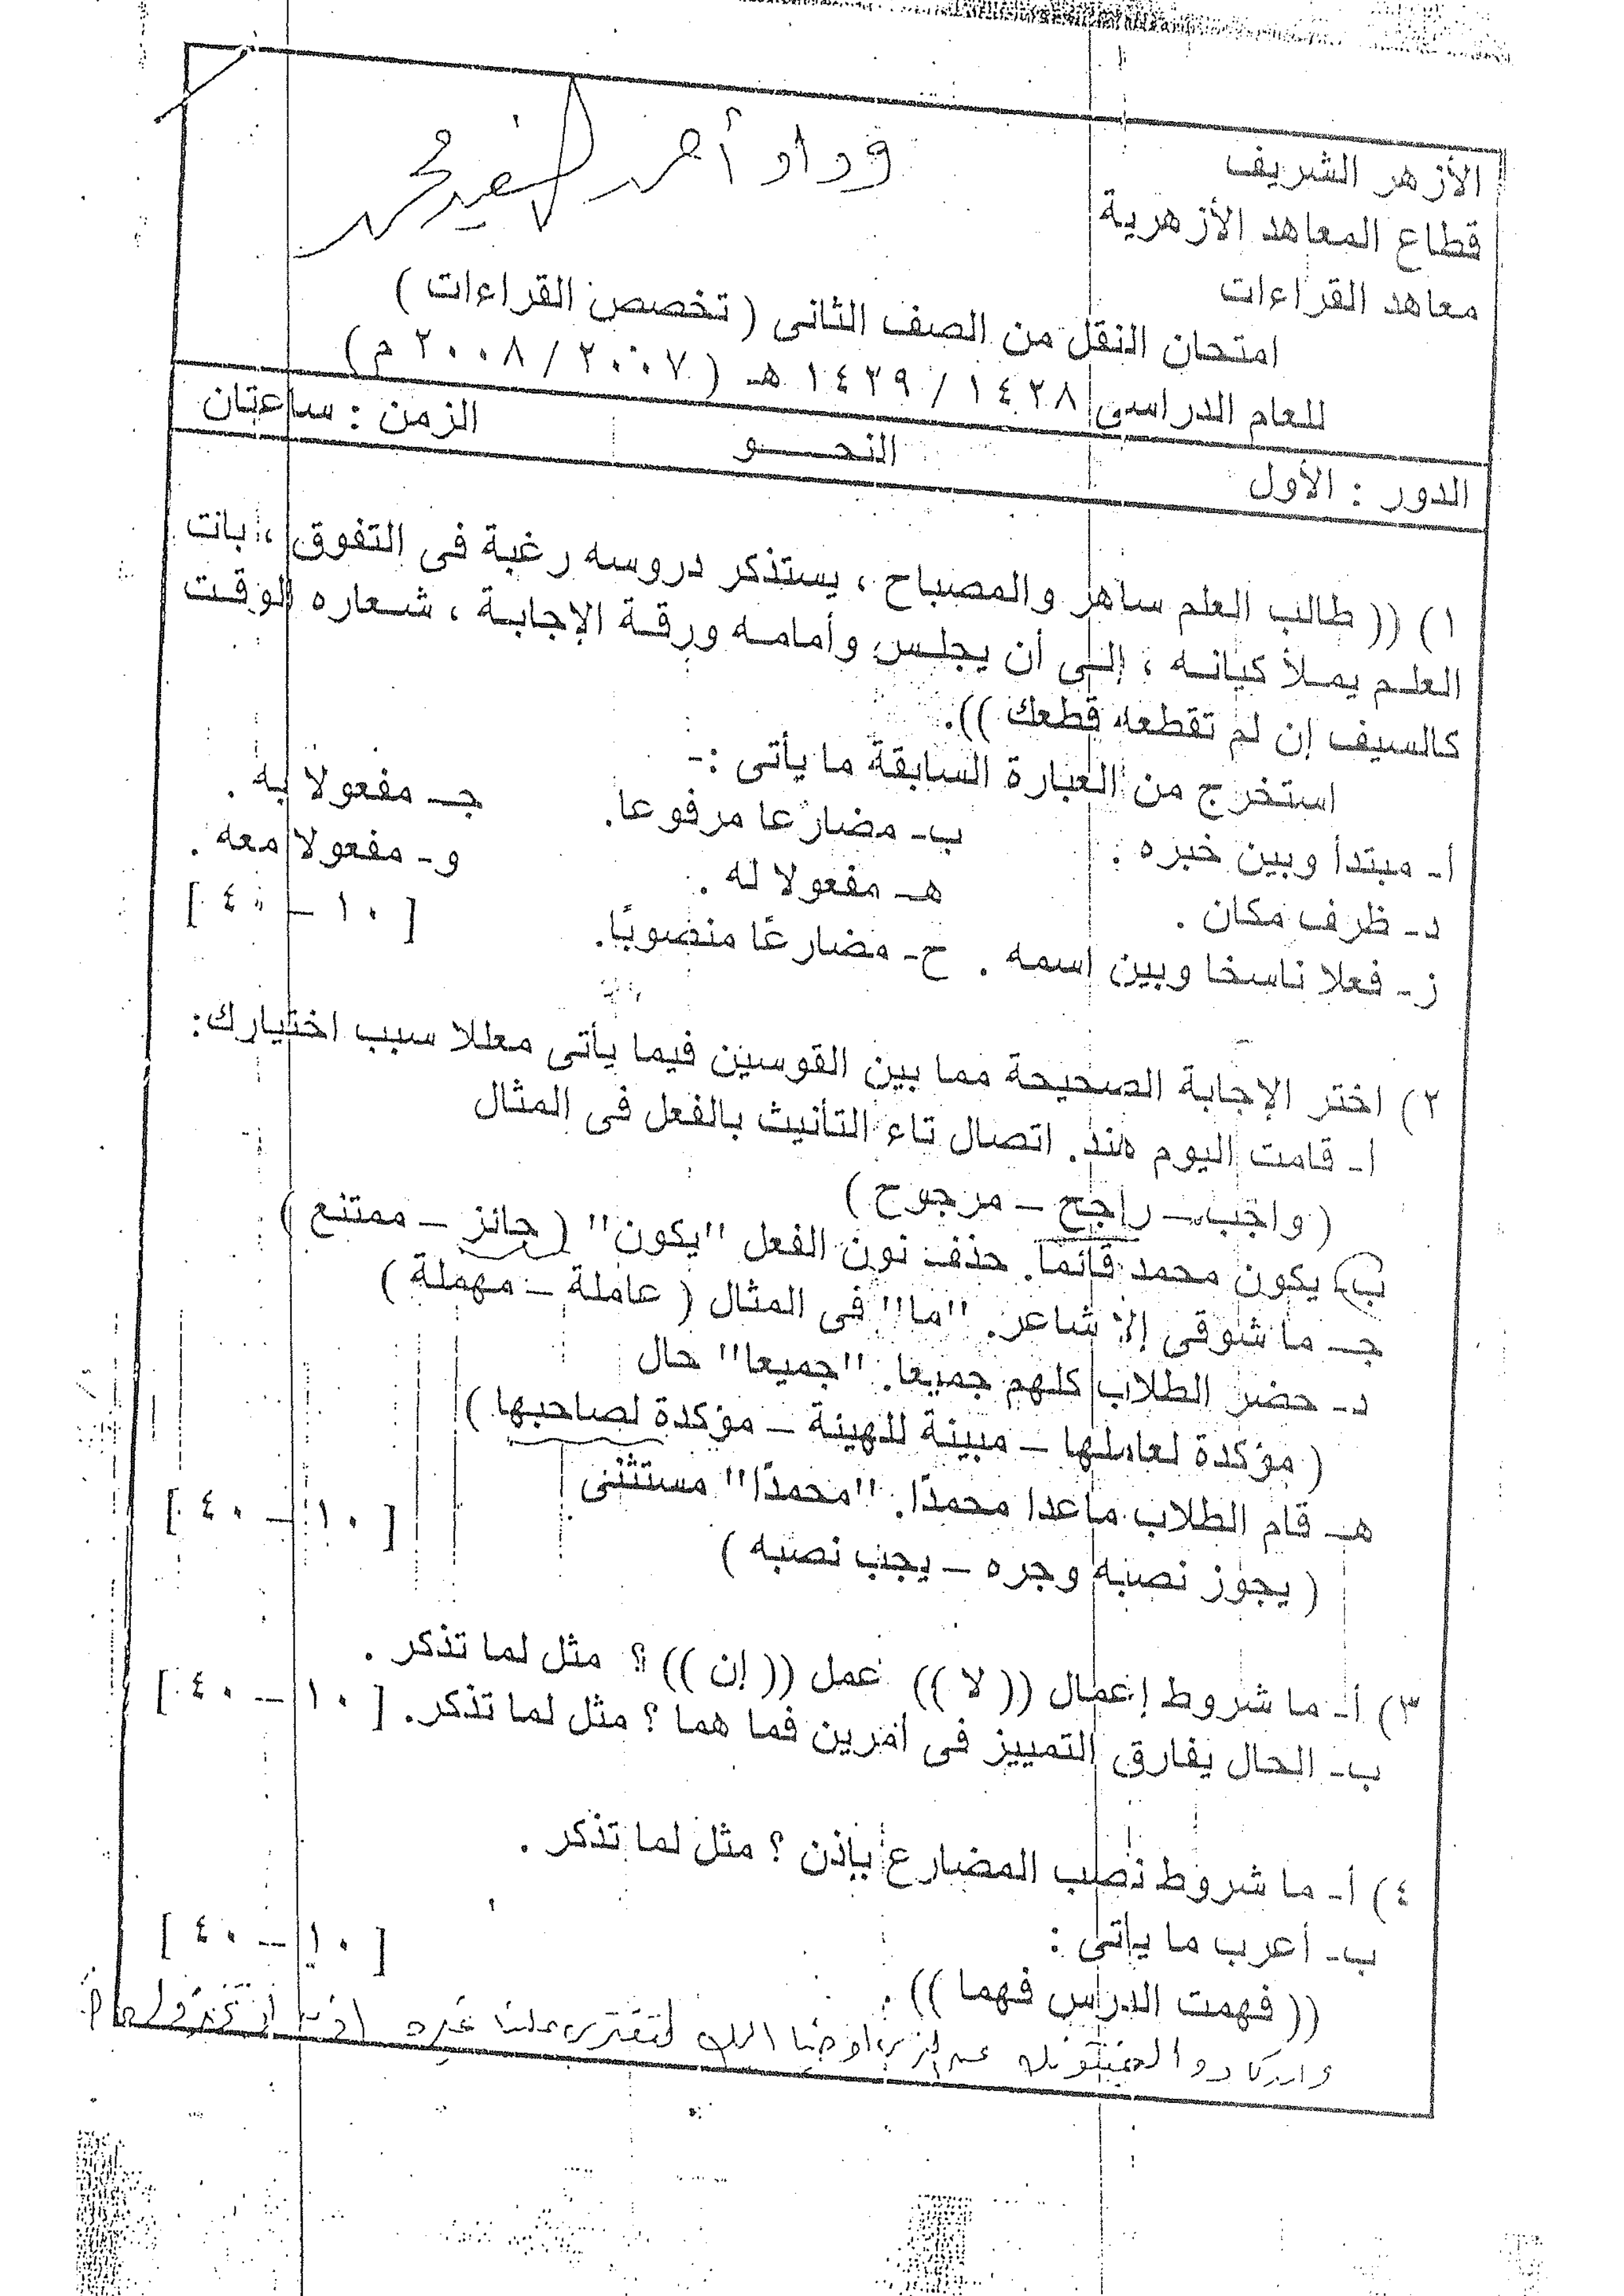 وداد أحمد السعيد محمد
الأزهر الشريف
قطاع المعاهد الأزهرية
معاهد القراءات
امتحان النقل من الصف الثانى ( تخصص القراءات )
للعام الدراسى ١٤٢٨ / ١٤٢٩ هـ ( ٢٠٠٧ / ٢٠٠٨ م )
الدور : الأول النحـــــو الزمن : ساعتان
١) (( طالب العلم ساهر والمصباح ، يستذكر دروسه رغبة فى التفوق ، بانت
العلـم يمـلأ كيانـه ، إلـى أن يجلـس وأمامـه ورقـة الإجابـة ، شـعاره الوقـت
كالسيف إن لم تقطعه قطعك )).
استخرج من العبارة السابقة ما يأتى :-
أ- مبتدأ وبين خبره . ب- مضارعا مرفوعا. جـ- مفعولا به .
د- ظرف مكان . هـ- مفعولا له . و- مفعولا معه .
ز- فعلا ناسخا وبين اسمه . ح- مضارعًا منصوبًا. [ ١٠ – ٤٠ ]
٢) اختر الإجابة الصحيحة مما بين القوسين فيما يأتى معللا سبب اختيارك:
أ- قامت اليوم هند. اتصال تاء التأنيث بالفعل فى المثال
( واجب – راجح – مرجوح )
ب- يكون محمد قائما. حذف نون الفعل "يكون" ( جائز – ممتنع )
جـ- ما شوقى إلا شاعر. "ما" فى المثال ( عاملة – مهملة )
د- حضر الطلاب كلهم جميعا. "جميعا" حال
( مؤكدة لعاملها – مبينة للهيئة – مؤكدة لصاحبها )
هـ- قام الطلاب ماعدا محمدًا. "محمدًا" مستثنى
( يجوز نصبه وجره – يجب نصبه ) [ ١٠ – ٤٠ ]
٣) أ- ما شروط إعمال (( لا )) عمل (( إن )) ؟ مثل لما تذكر .
ب- الحال يفارق التمييز فى أمرين فما هما ؟ مثل لما تذكر. [ ١٠ – ٤٠ ]
٤) أ- ما شروط نصب المضارع بإذن ؟ مثل لما تذكر .
ب- أعرب ما يأتى :
(( فهمت الدرس فهما )) . [ ١٠ – ٤٠ ]
وإن كادوا ليفتنونك عن الذي أوحينا إليك لتفتري علينا غيره